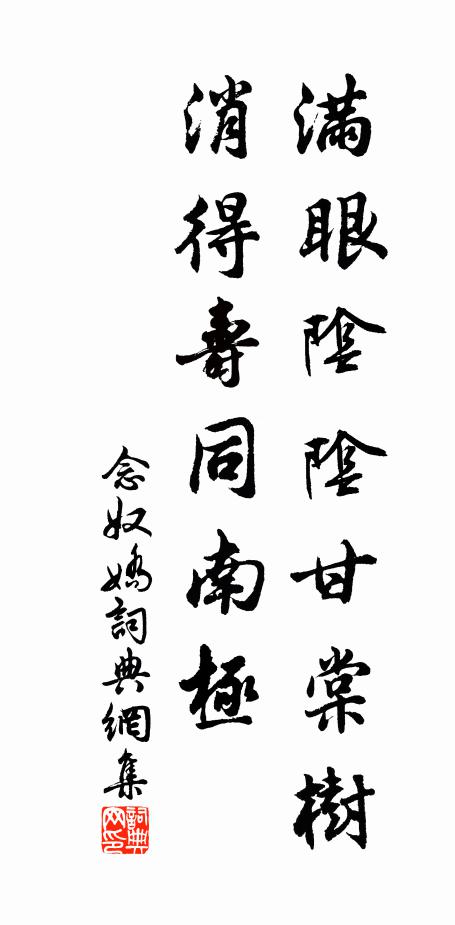 滿眼陰陰甘棠樹
消得壽同南極
念奴嬌詞典網集
詞典网印